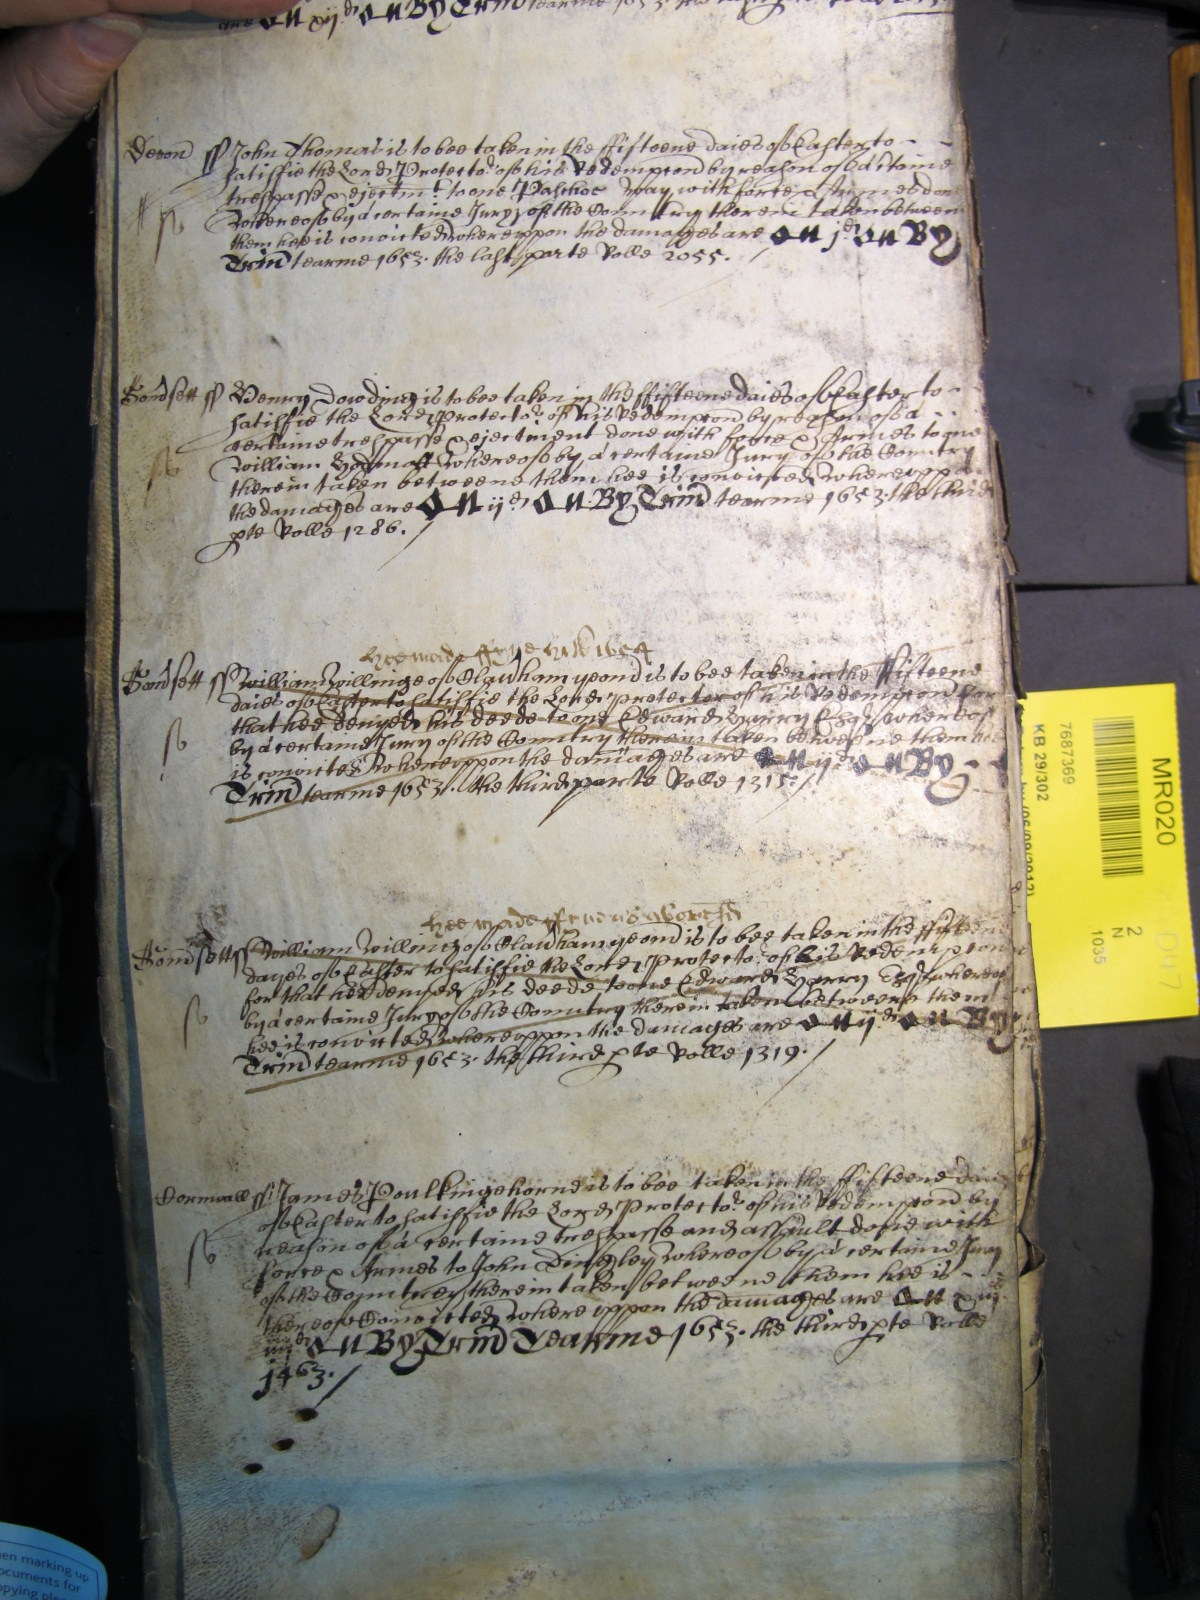 are on xij d on By Trin tearme 1653. the
Devon ss John Thomas is to bee taken in the ffifteene daies of Easter to
satisfie the Lord Protector of his Redempcond by reason of a certaine
trespasse & ejectmt to one Paschoe May, with force & Armes done
whereof by a certaine Jury of the Countrey therein taken betweene
them hee is convicted whereuppon the damages are on j d on By
Trin tearme 1653. the last parte Rolle 2055.
Somsett ss Henry Dowding is to bee taken in the ffifteene daies of Easter to
satisfie the Lord Protector of his Redempcond by reason of a
certaine trespasse & ejectment done with force & Armes to one
William whereof by a certaine Jury of the Countrey
therein taken betweene them hee is convicted whereuppon
the damages are on ij d on By Trin tearme 1653. the third
pte Rolle 1286.
hee made ffyne 1654
Somsett ss William Willinge of Claverham yeond is to bee taken in the ffifteene
daies of Easter to satisfie the Lord Protector of his Redempcon for
that hee denyed his deede to one Edward Esqr whereof
by a certaine Jury of the Countrey therein taken betweene them hee
is convicted whereuppon the damages are on ij d on By
Trin tearme 1653. the third parte Rolle 1315.
hee made ffine as aforesd
Somsett ss William Willing of Claverham yeond is to bee taken in the ffifteene
dayes of Easter to satisfie the Lord Protector of his Redempcon
for that hee denyed his deede to one Edward Esqr whereof
by a certaine Jury of the Countrey therein taken betweene them
hee is convicted whereuppon the damages are on ij d on By
Trin tearme 1653. the third pte Rolle 1319.
Cornwall ss James Poulkingehorne is to bee taken in the ffifteene daies
of Easter to satisfie the Lord Protector of his Redempcond by
reason of a certaine trespasse and assault done with
force & Armes to John Dingley whereof by a certaine Jury
of the Countrey therein taken betweene them hee is
thereof Convicted whereuppon the damages are on
on By Trin Tearme 1653. the third pte Rolle
1463.
MR020
7687369
KB 29/302
2
N
1035
en marking up
ocuments for
opying